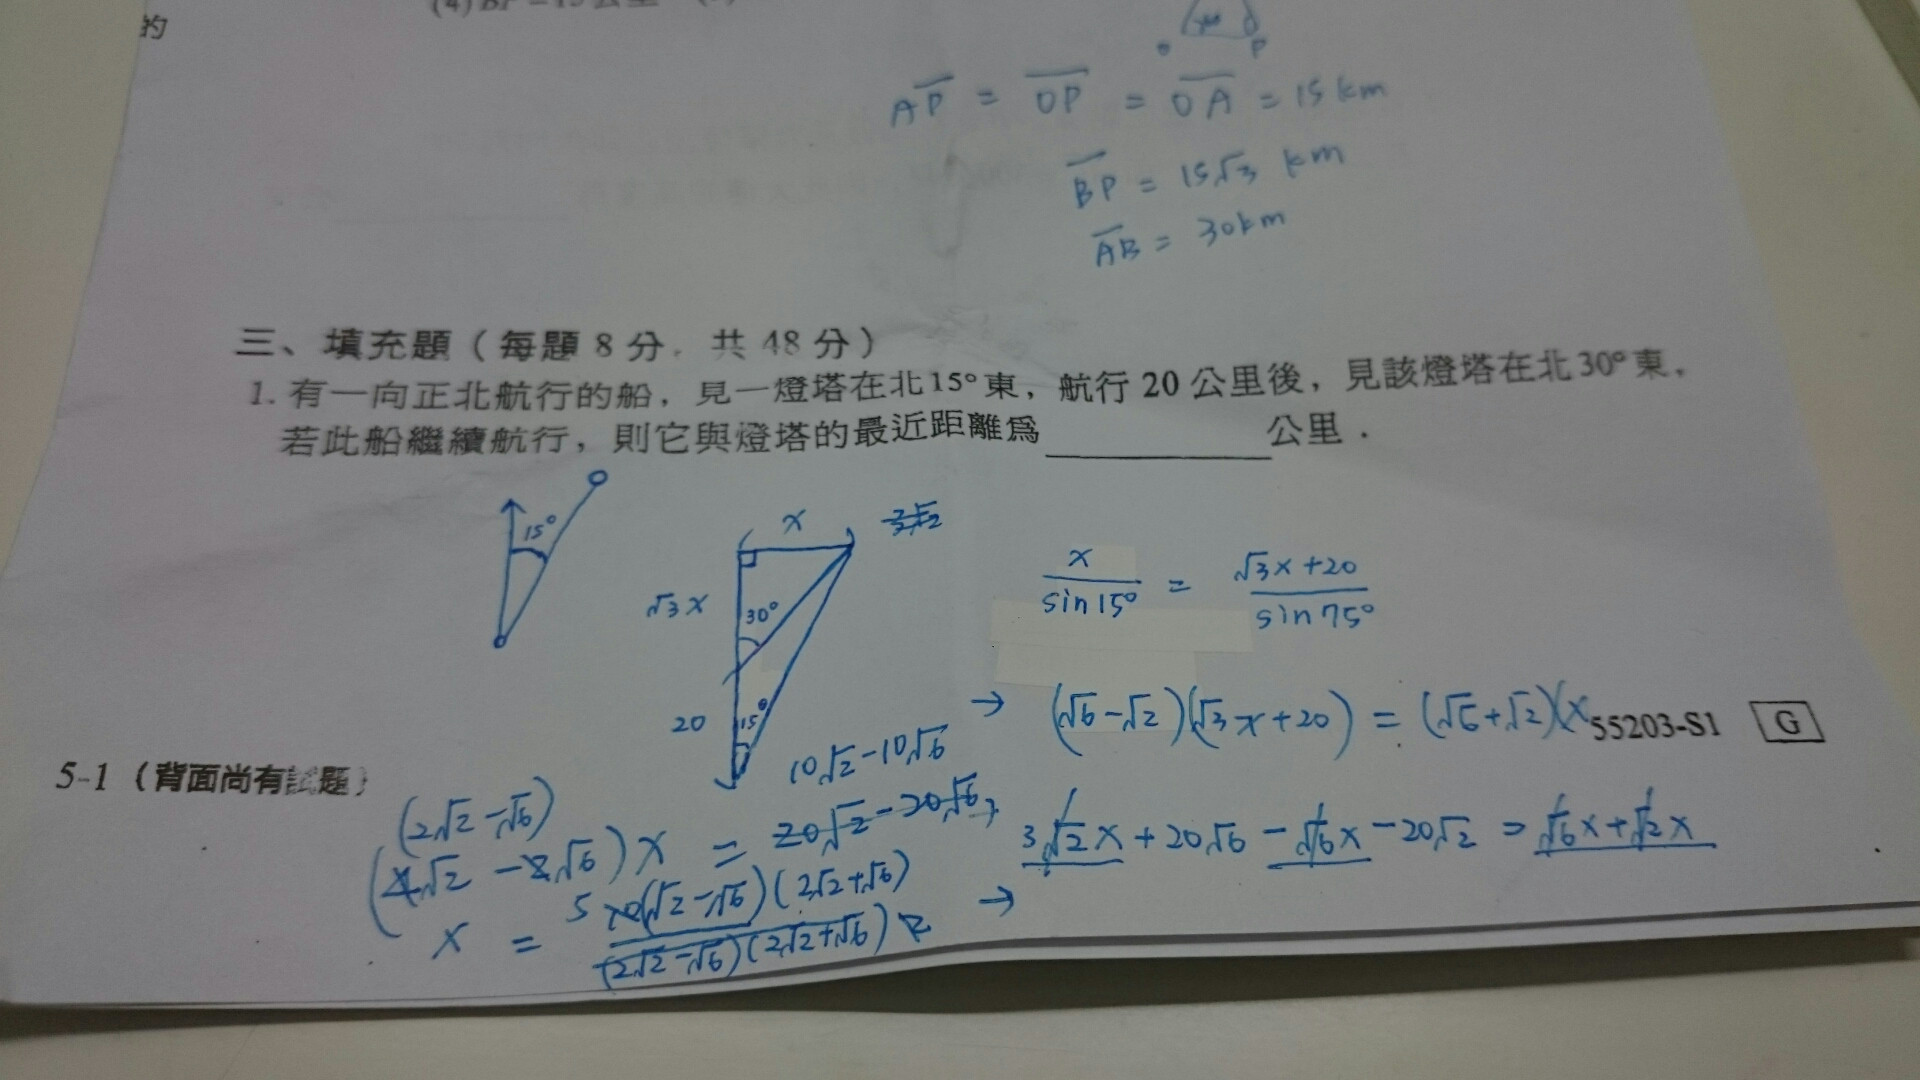 的
P
AP = OP = OA = 15 km
BP = 15√3 km
AB = 30km
三、填充題（每題 8 分，共 48 分）
1. 有一向正北航行的船，見一燈塔在北15°東，航行 20 公里後，見該燈塔在北30°東，
若此船繼續航行，則它與燈塔的最近距離為 公里．
15°
x
√3 x
30°
20
15°
x/sin 15° = √3x+20/sin 75°
→ (√6-√2)(√3x+20) = (√6+√2)(x
55203-S1 G
5-1（背面尚有試題）
10√2-10√6
→ 3√2x+20√6-√6x-20√2 = √6x+√2x
(2√2-√6)
(4√2-2√6)x = 20√2-20√6
x = 5 10(√2-√6)(2√2+√6)/(2√2-√6)(2√2+√6)
→